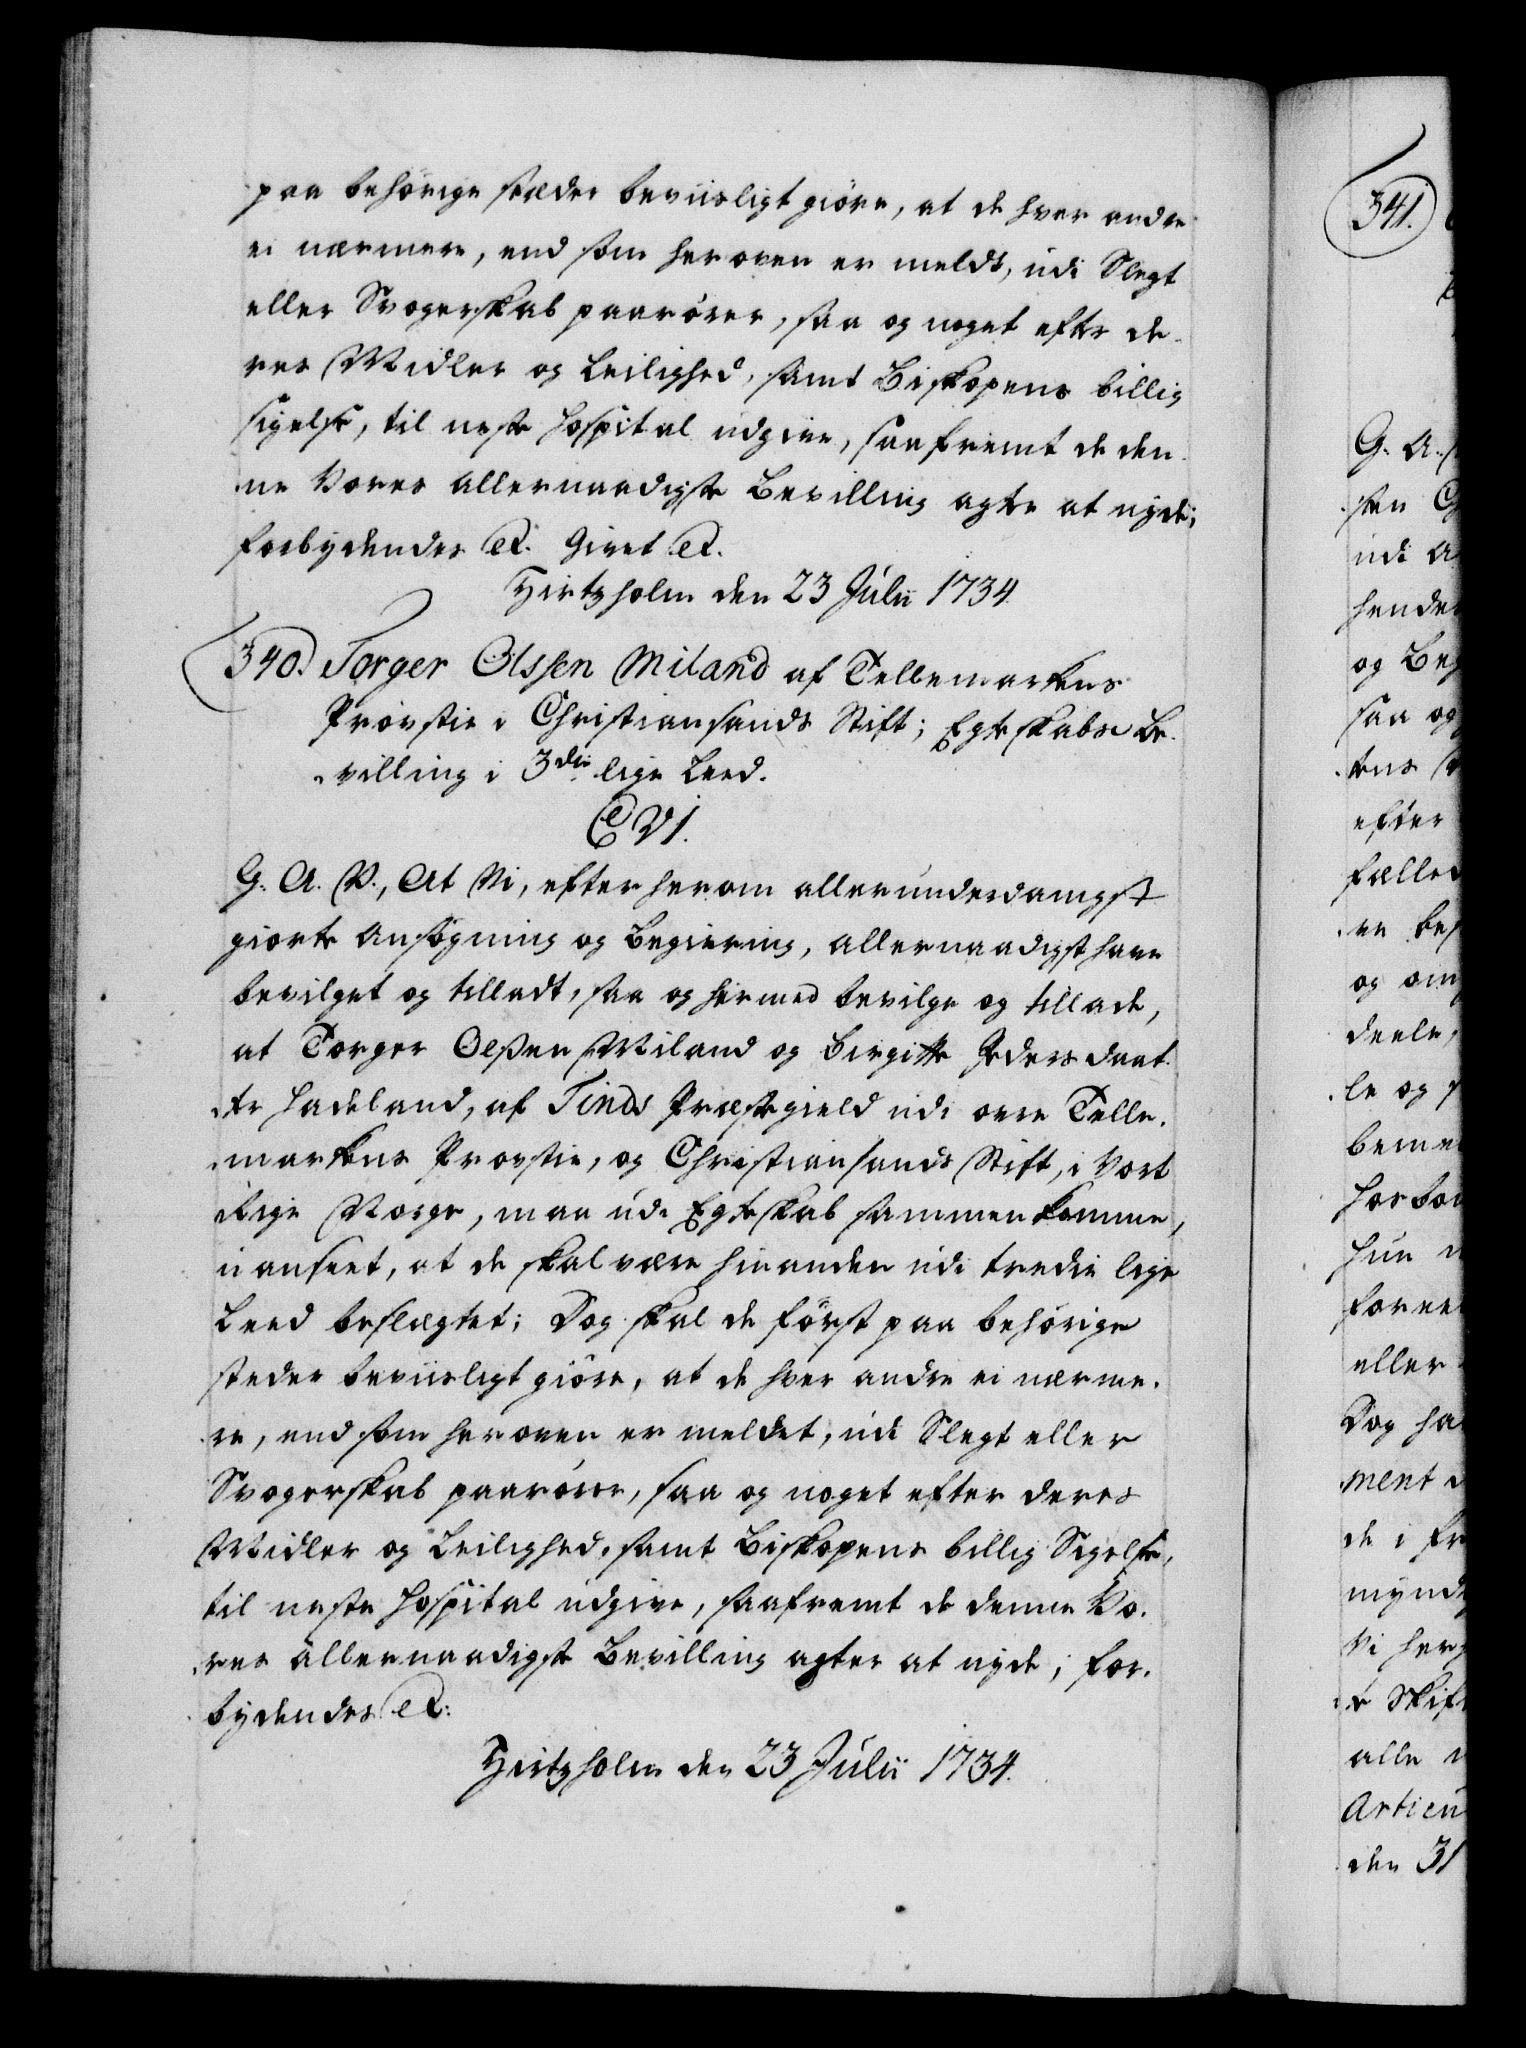 paa behörige stæder beviisligt giöre, at de hver andre
ei nærmere, end som her oven er meldt, udi Slegt
eller Svogerskab paarörer, saa og noget efter de-
res Midler og Leilighed, samt Biskopens billig
sigelse, til neste Hospital udgive, saafremt de den-
ne Vores allernaadigste Bevilling agte at nyde;
forbydendes etc. Givet etc.
Hirtzholm den 23 Julii 1734.
340. Torger Olssen Miland af Tellemarkens
Provstie i Christiansands Stift; Egteskabs Be-
villing i 3die lige Leed.
C VI.
G. A. V., At Vi, efter herom allerunderdanigst
giorte Ansögning og Begiering, allernaadigst have
bevilget og tilladt, saa og hermed bevilge og tillade,
at Torger Olssen Miland og Birgitte Peders daat-
ter Hadeland, af Tinds Præstegield udi övre Telle-
markens Provstie, og Christiansands Stift, i Vort
Rige Norge, maa udi Egteskab sammenkomme,
u anseet, at de skal være hinanden udi tredie lige
Leed beslægtet; Dog skal de först paa behörige
steder beviisligt giöre, at de hver andre ei nærme-
re, end som her oven er meldet, udi Slegt eller
Svogerskab paarörer, saa og noget efter deres
Midler og Leilighed, samt Biskopens billig Sigelse,
til neste Hospital udgive, saafremt de denne Vo-
res allernaadigste Bevilling agter at nyde; for-
bydendes etc:
Hirtzholm den 23 Julii 1734.
341.
G. A.
sen
udi
hende
og
saa og
tens
efter
og om
deele,
le og
bemel
hun
eller
Dog
ment
de i
mynd
Vi her
alle
Articu
den 31